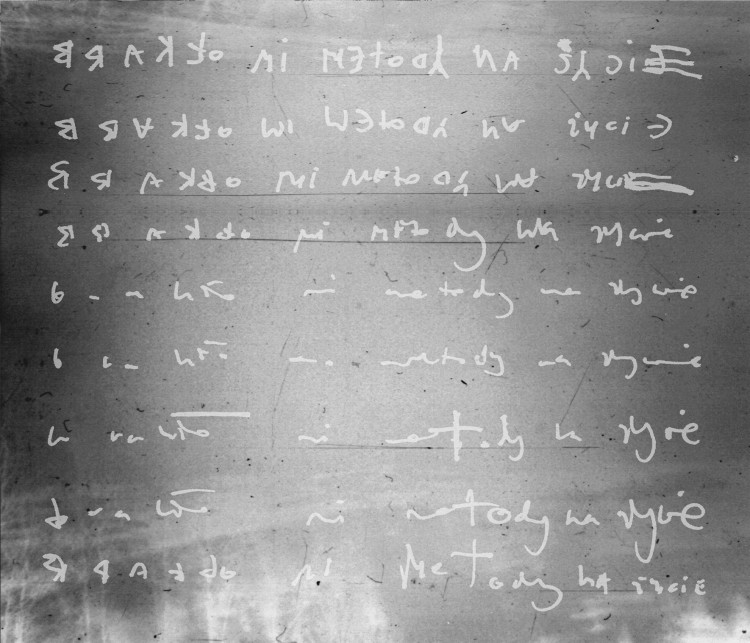 BRAKŁO MI METODY NA ŻYCIE
BRAKŁO MI METODY NA życie
BRAKŁO MI METODY NA
BRAKŁO mi METody NA życie
mi metody na życie
metody na życie
mi metody na życie
mi metody na życie
BRAKŁO mi Metody NA życiE